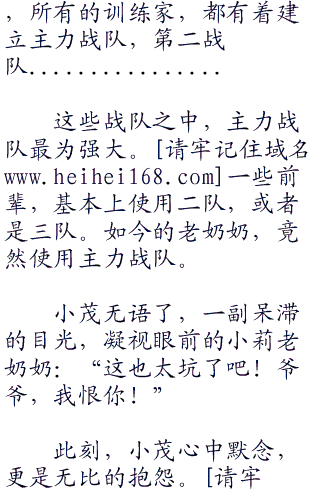 ，所有的训练家，都有着建
立主力战队，第二战
队................
这些战队之中，主力战
队最为强大。[请牢记住域名
www.heihei168.com]一些前
辈，基本上使用二队，或者
是三队。如今的老奶奶，竟
然使用主力战队。
小茂无语了，一副呆滞
的目光，凝视眼前的小莉老
奶奶：“这也太坑了吧！爷
爷，我恨你！”
此刻，小茂心中默念，
更是无比的抱怨。[请牢